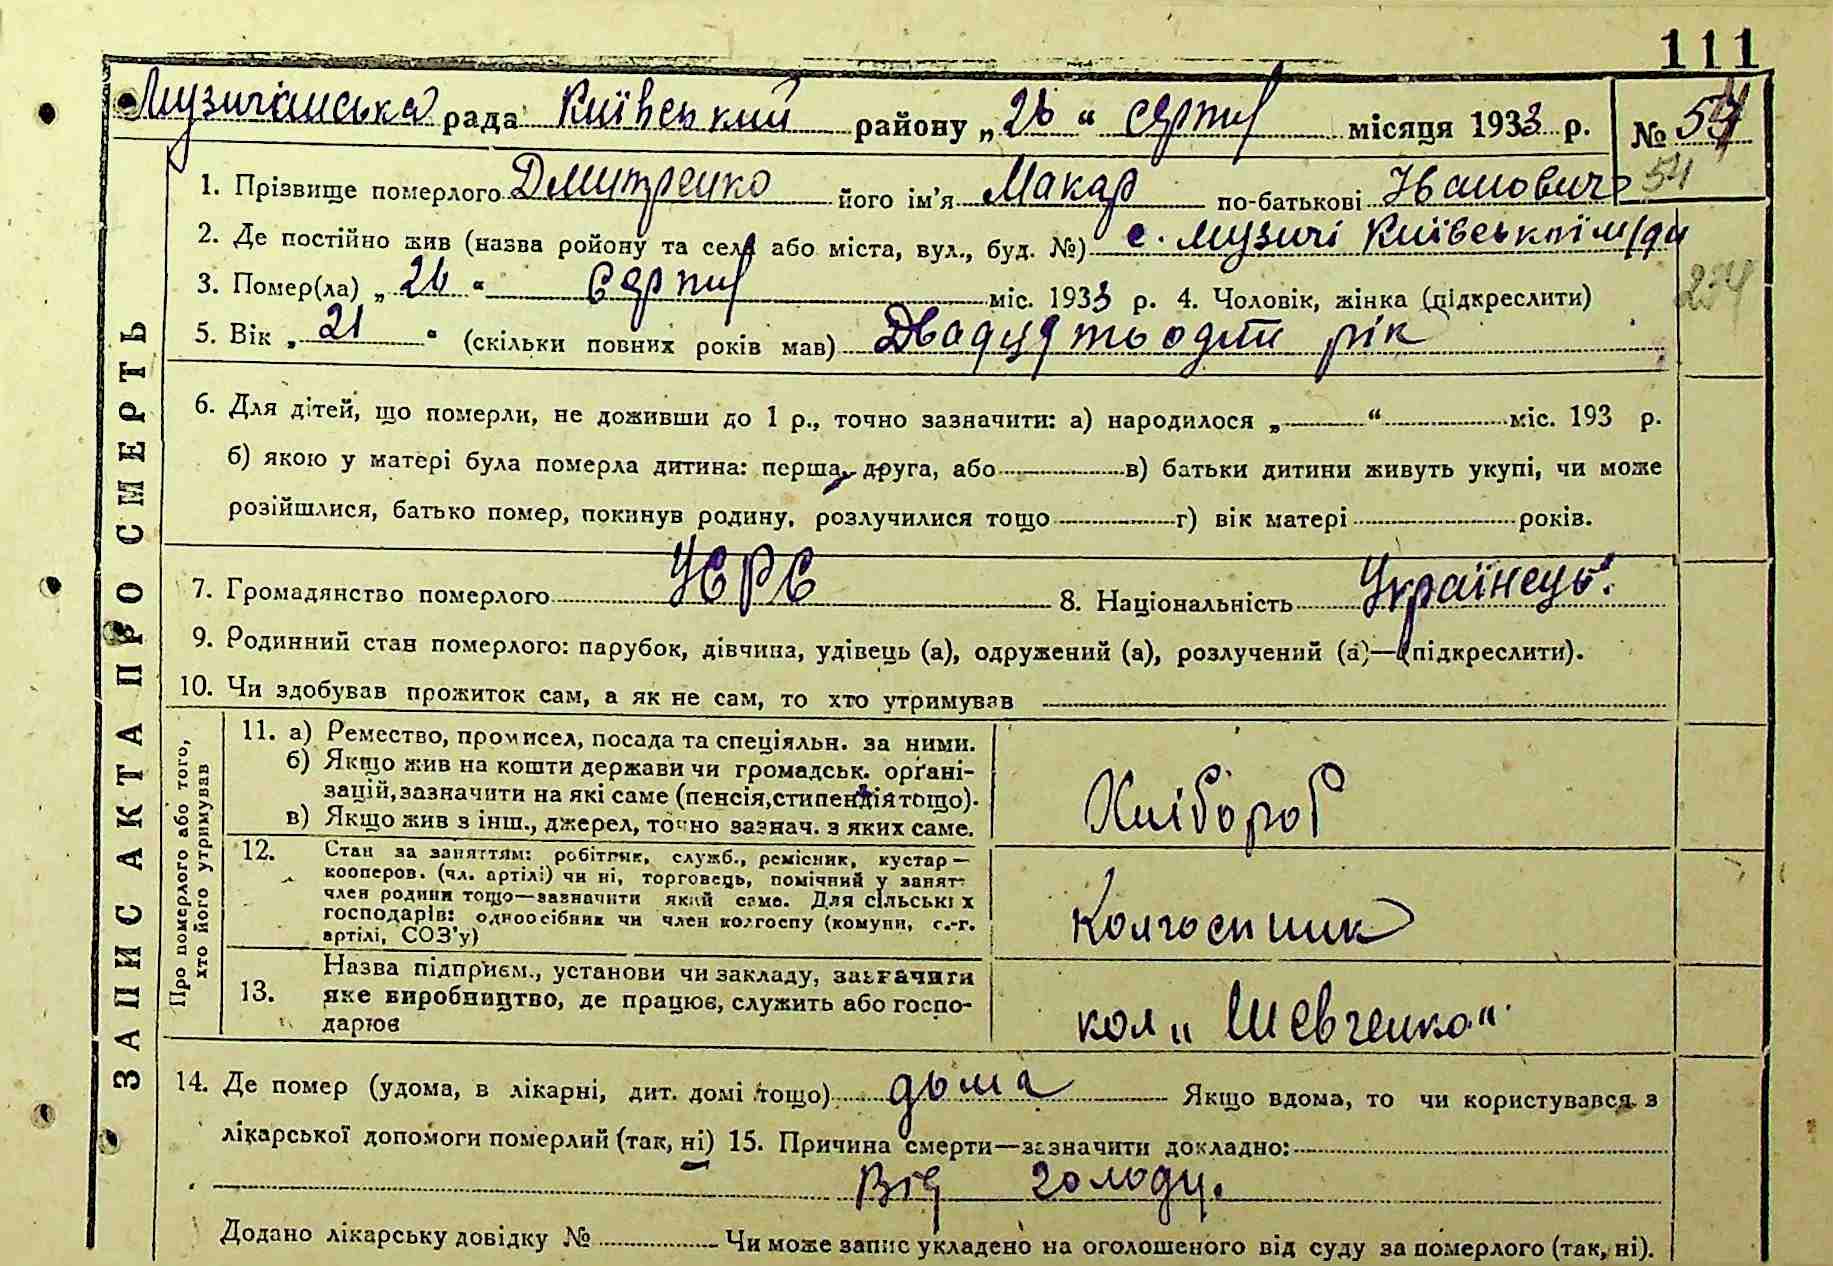 111
Музичанська рада Київський району „26“ серпня місяця 1933 р. № 54
54
1. Прізвище померлого Дмитренко його ім'я Макар по-батькові Іванович
2. Де постійно жив (назва ройону та села або міста, вул., буд. №) с. Музичі Київської м/ди
254
3. Помер(ла) „26“ серпня міс. 1933 р. 4. Чоловік, жінка (підкреслити)
5. Вік „21“ (скільки повних років мав) Двадцять один рік
6. Для дітей, що померли, не доживши до 1 р., точно зазначити: а) народилося „ “ міс. 193 р.
б) якою у матері була померла дитина: перша, друга, або в) батьки дитини живуть укупі, чи може
розійшлися, батько помер, покинув родину, розлучилися тощо г) вік матері років.
7. Громадянство померлого УСРС 8. Національність Українець.
9. Родинний стан померлого: парубок, дівчина, удівець (а), одружений (а), розлучений (а)—(підкреслити).
10. Чи здобував прожиток сам, а як не сам, то хто утримував
ЗАПИС АКТА ПРО СМЕРТЬ
Про померлого або того,
хто його утримував
11. а) Ремество, промисел, посада та спеціяльн. за ними.
б) Якщо жив на кошти держави чи громадськ. орґані-
зацій, зазначити на які саме (пенсія, стипендія тощо).
в) Якщо жив з інш., джерел, точно зазнач. з яких саме.
Хлібороб
12. Стан за заняттям: робітник, служб., ремісник, кустар—
кооперов. (чл. артілі) чи ні, торговець, помічний у занят-
член родини тощо—зазначити який саме. Для сільських
господарів: одноосібник чи член колгоспу (комуни, с.-г.
артілі, СОЗ'у)
Колгоспник
13. Назва підприєм., установи чи закладу, зазначити
яке виробництво, де працює, служить або госпо-
дарює
кол „Шевченко“
14. Де помер (удома, в лікарні, дит. домі тощо) дома Якщо вдома, то чи користувався з
лікарської допомоги померлий (так, ні) 15. Причина смерти—зазначити докладно:
Від голоду.
Додано лікарську довідку № Чи може запис укладено на оголошеного від суду за померлого (так, ні).